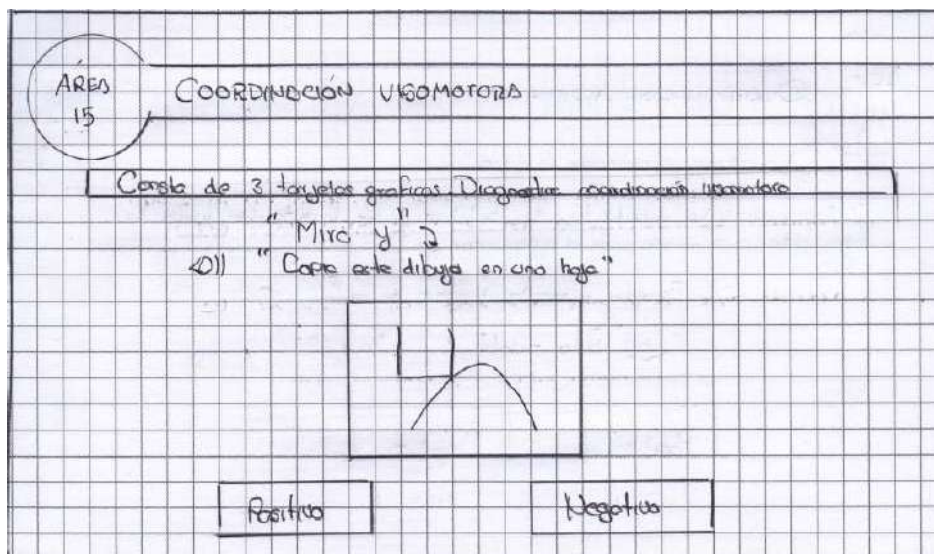 ÁREA
15
COORDINACIÓN VISOMOTORA
Consta de 3 tarjetas graficas. Diagnostica coordinación visomotora
"Mira y"
"Copie este dibujo en una hoja"
Positivo
Negativo